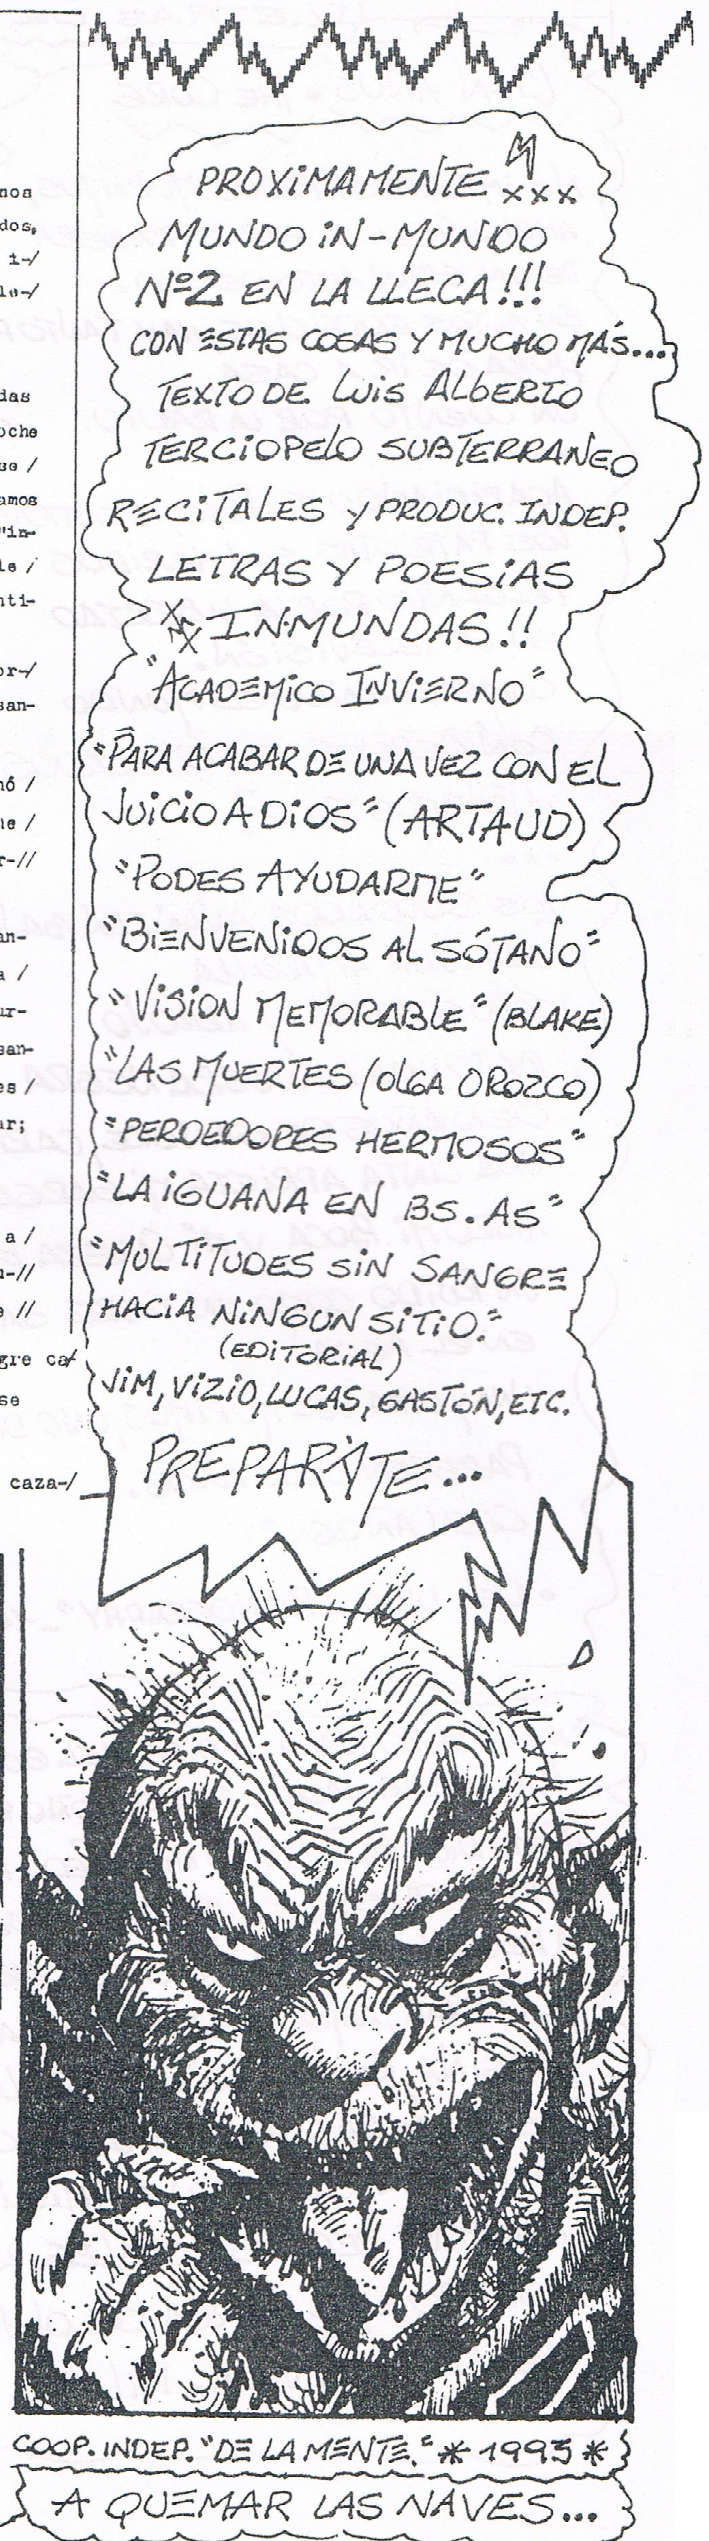 nos
dos,
i-/
le-/
das
oche
se /
amos
"in-
le /
nti-
or-/
san-
nó /
ne /
r-//
an-
a /
ur-
san-
es /
ar;
a /
u-//
e //
gre ca/
se
caza-/
PROXiMAMENTE xxx
MUNDO iN-MUNDO
Nº2 EN LA LLECA!!!
CON ESTAS COSAS Y MUCHO MÁS...
TEXTO DE LUiS ALBERTO
TERCiOPELO SUBTERRANEO
RECiTALES Y PRODUC. INDEP.
LETRAS Y POESiAS
INMUNDAS!!
"ACADEMiCO INViERNO"
"PARA ACABAR DE UNA VEZ CON EL
JUiCiO A DiOS" (ARTAUD)
"PODES AYUDARME"
"BiENVENiDOS AL SÓTANO"
"ViSiON MEMORABLE" (BLAKE)
"LAS MUERTES (OLGA OROZCO)
"PERDEDORES HERMOSOS"
"LA iGUANA EN BS. AS"
"MULTiTUDES SiN SANGRE
HACiA NiNGUN SiTiO."
(EDiTORiAL)
JiM, ViZiO, LUCAS, GASTÓN, ETC.
PREPARÁTE...
COOP. INDEP. "DE LA MENTE." * 1993 *
A QUEMAR LAS NAVES...